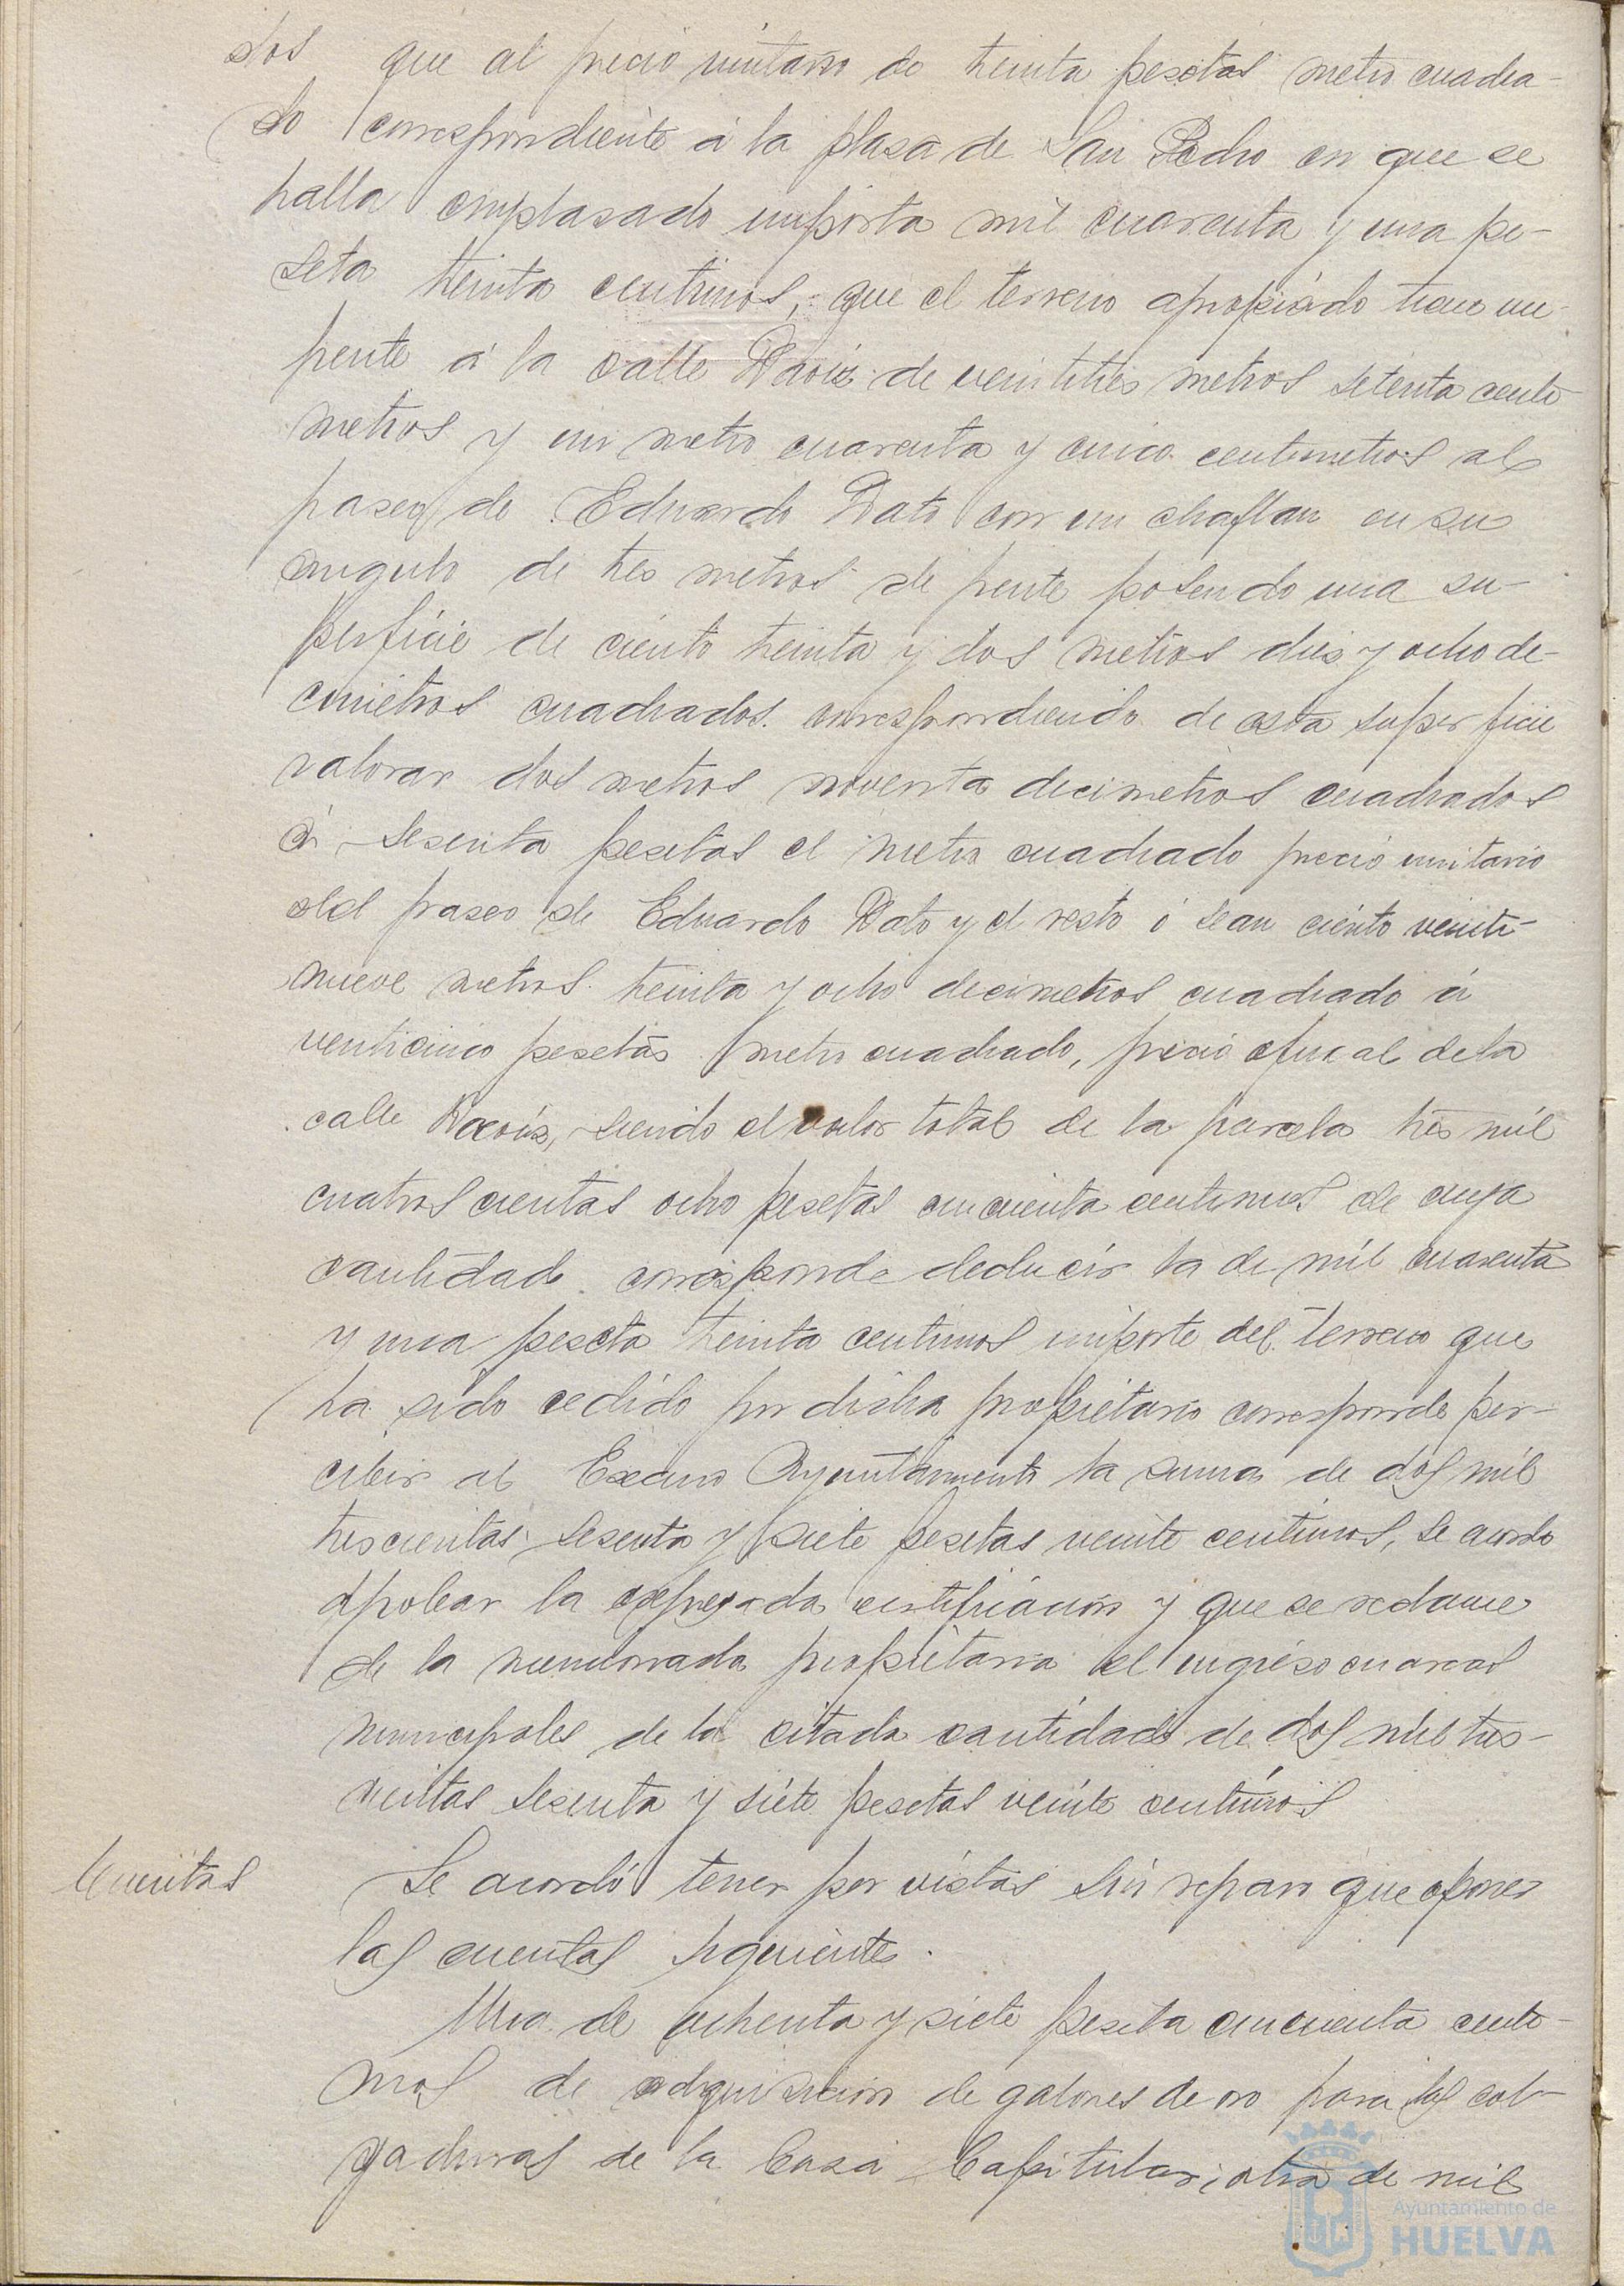 dos que al precio unitario de treinta pesetas metro cuadra-
do correspondiente á la plasa de San Pedro en que se
halla emplasado importa mil cuarenta y una pe-
seta treinta centimos, que el terreno apropiado tiene un
frente á la calle Daoiz de veintitrés metros setenta centi-
metros y un metro cuarenta y cinco centimetros al
paseo de Eduardo Dato con un chaflan en su
angulo de tres metros de frente posendo una su-
perficie de ciento treinta y dos metros dies y ocho de-
cimetros cuadrados correspondiendo de esta superficie
valorar dos metros noventa decimetros cuadrados
á sesenta pesetas el metro cuadrado precio unitario
del paseo de Eduardo Dato y el resto ó sean ciento veinti-
nueve metros treinta y ocho decimetros cuadrado á
venticinco pesetas metro cuadrado, precio oficial de la
calle Daoiz, siendo el valor total de la parcela tres mil
cuatroscientas ocho pesetas cincuenta centimos de cuya
cantidad corresponde deducir la de mil cuarenta
y una peseta treinta centimos importe del terreno que
ha sido cedido por dicha propietario corresponde per-
cibir al Excmo Ayuntamiento la suma de dos mil
trescientas sesenta y siete pesetas veinte centimos, se acordo
aprobar la expresada certificación y que se reclame
de la mencionada propietaria el ingreso en arcas
municipales de la citada cantidad de dos mil tres-
cientas sesenta y siete pesetas veinte centimos
Cuentas Se acordó tener por vistas sin reparo que oponer
las cuentas siguiente.
Una de ochenta y siete peseta cincuenta centi-
mos de adquisicion de galones de oro para las col-
gaduras de la Casa Capitular; otra de mil
Ayuntamiento de
HUELVA